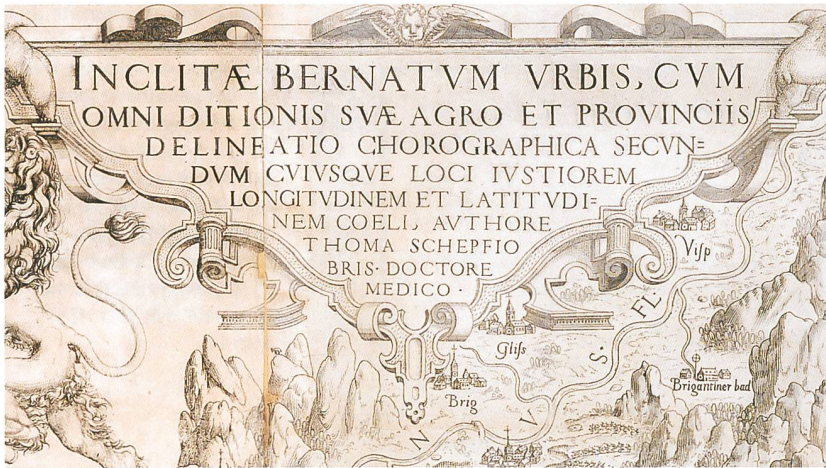 INCLITÆ BERNATVM VRBIS, CVM
OMNI DITIONIS SVÆ AGRO ET PROVINCIIS
DELINEATIO CHOROGRAPHICA SECVN=
DVM CVIVSQVE LOCI IVSTIOREM
LONGITVDINEM ET LATITVDI=
NEM COELI, AVTHORE
THOMA SCHEPFIO
BRIS· DOCTORE
MEDICO ·
Visp
Gliss
S · FL
Brigantiner bad
Brig
N V